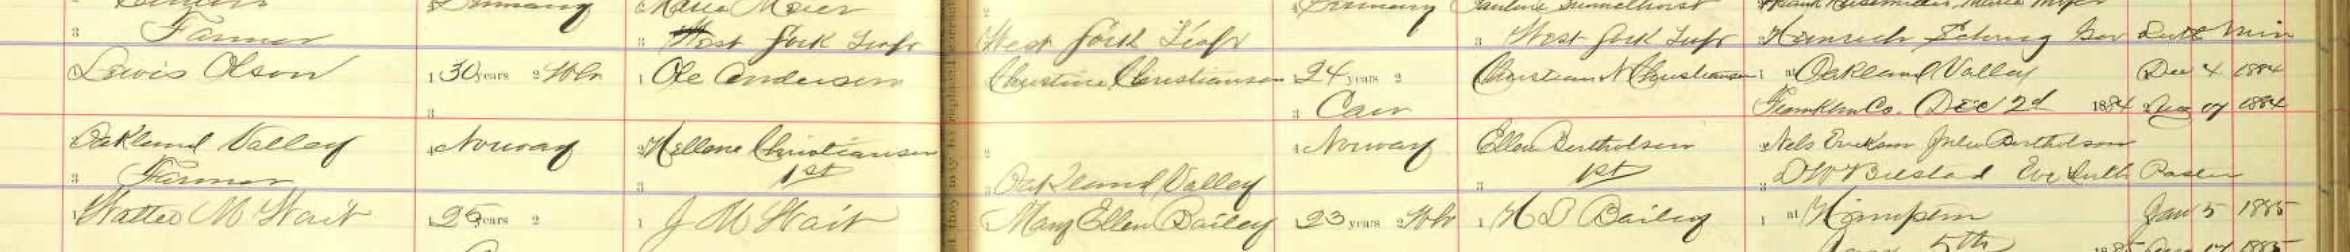 Germany Marie Meier Germany Pauline
3 Farmer 3 West Fork Twsp West Fork Twsp 3 West Fork Twsp 3 Heinrich Luth Min
1 Lewis Olson 1 30 years 2 Wh 1 Ole Anderson Christine Christiansen 1 24 years 2 Christian N Christiansen 1 at Oakland Valley Dec 4 1884
3 3 Franklin Co. Dec 2d 1884 1884
2 Oakland Valley 4 Norway 2 Hellene Christiansen 2 4 Norway Ellen Bertholsen 2 Nels Erickson Julia Bertholson
3 Farmer 3 1st 3 Oakland Valley 3 1st 3 Luth Pastor
1 Walter M Wait 1 25 years 2 1 J M Wait Mary Ellen Bailey 1 23 years 2 Wh 1 H D Bailey 1 at Hampton Jan 5 1885
5th 1885 1885